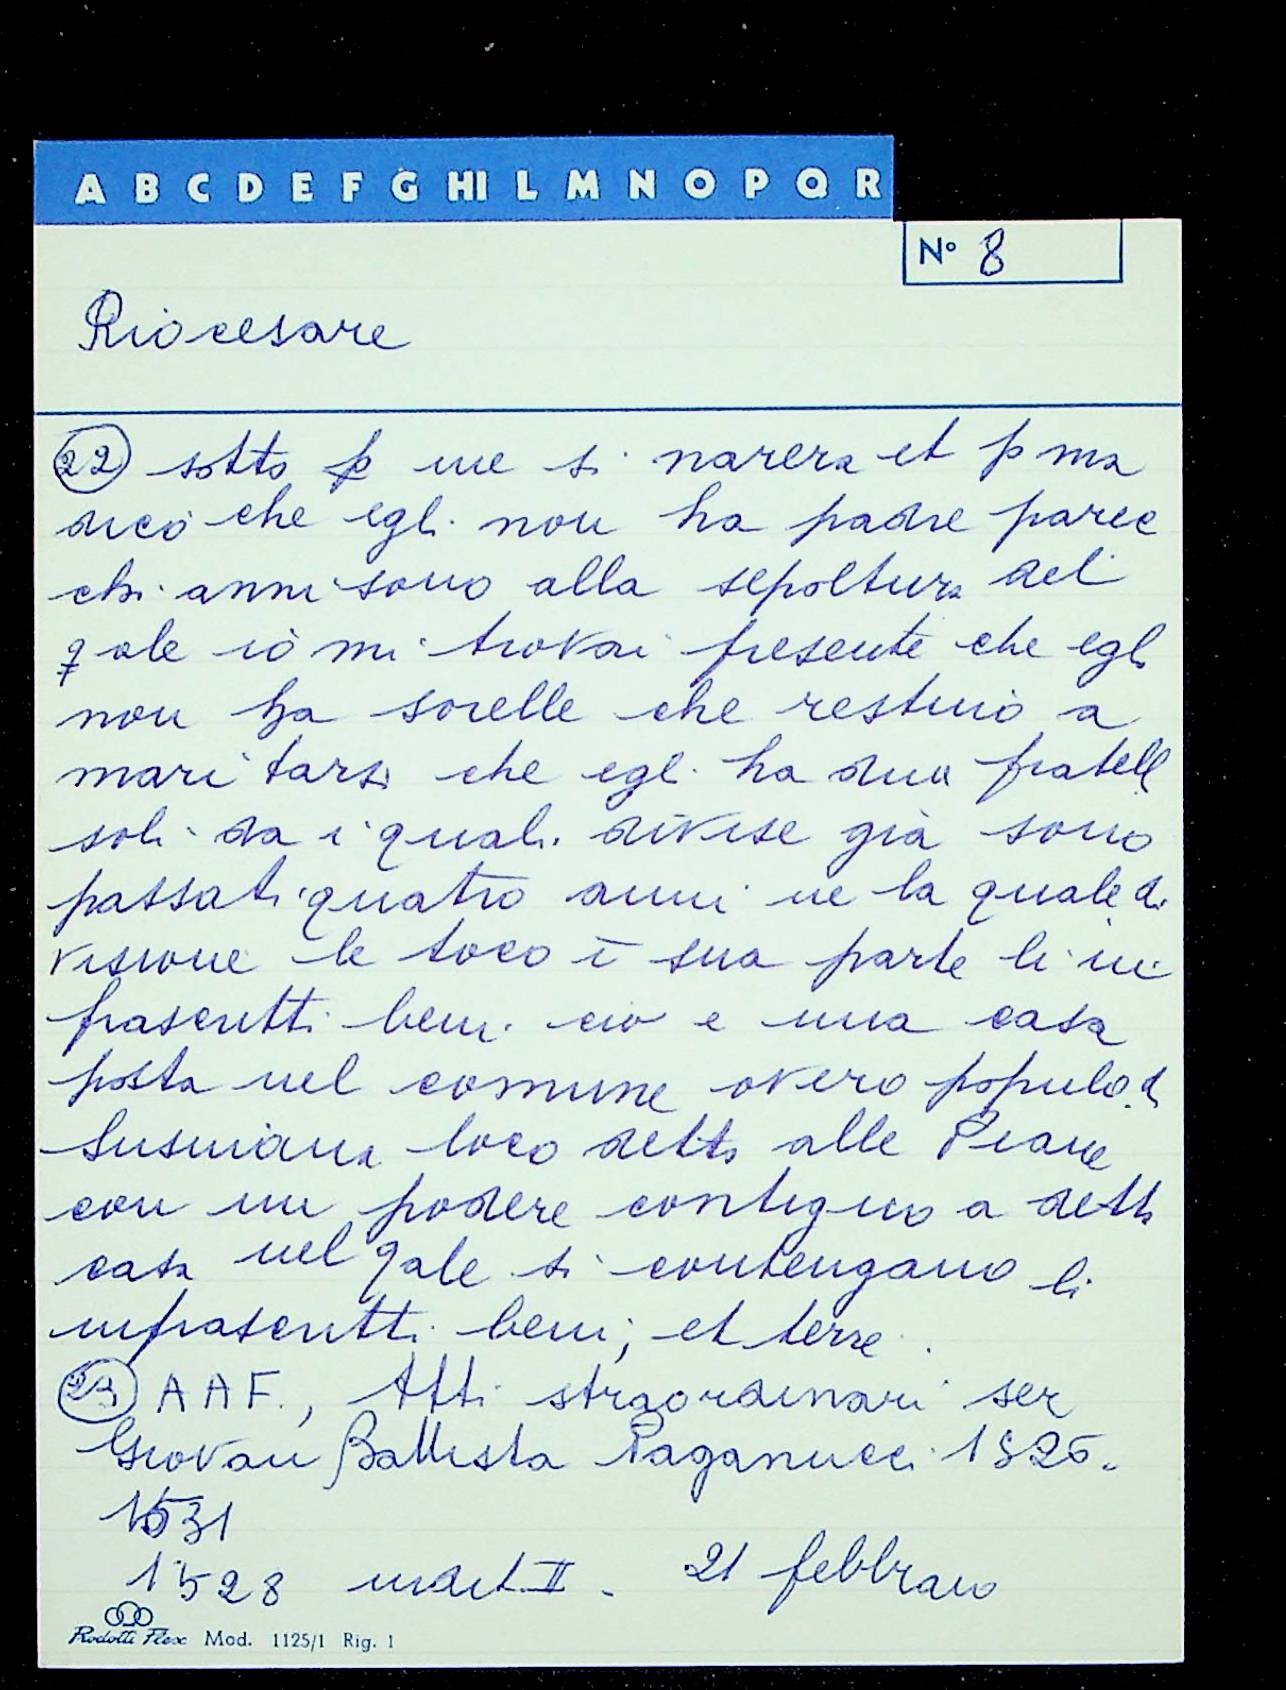 A B C D E F G HI L M N O P Q R
N° 8
Riocesare
22 sotto p me si narera et p ma
dico che egli non ha padre parec
chi anni sono alla sepoltura del
qale io mi trovai presente che egli
non ha sorelle che restino a
maritarsi che egli ha dua fratelli
soli da i quali divise già sono
passati quatro anni ne la quale di
visione le toco ī sua parte li in
frascritti beni cio e una casa
posta nel comune overo populo di
Susinana loco detto alle Piane
con un podere contiguo a detta
casa nel qale si contengano li
infrascritti beni, et terre.
23 AAF., Atti straordinari ser
Giovan Battista Paganucci 1525-
1531
1528 indict. II. 21 febbraio
Rodotti Flex Mod. 1125/1 Rig. 1